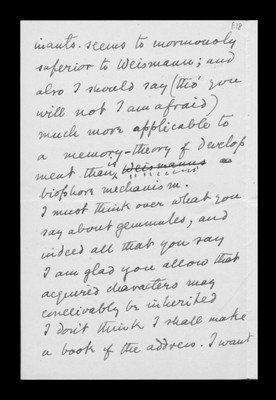 E18
inants. seems to mormously
superior to Weismann; and
also I should say (tho' you
will not I am afraid)
much more applicable to
a memory-theory of Develop
ment than Weismanns
biophore mechanism.
I must think over what you
say about gemmules, and
indeed all that you say
I am glad you allow that
acquired characters may
conceivably be inherited
I don't think I shall make
a book of the address. I want